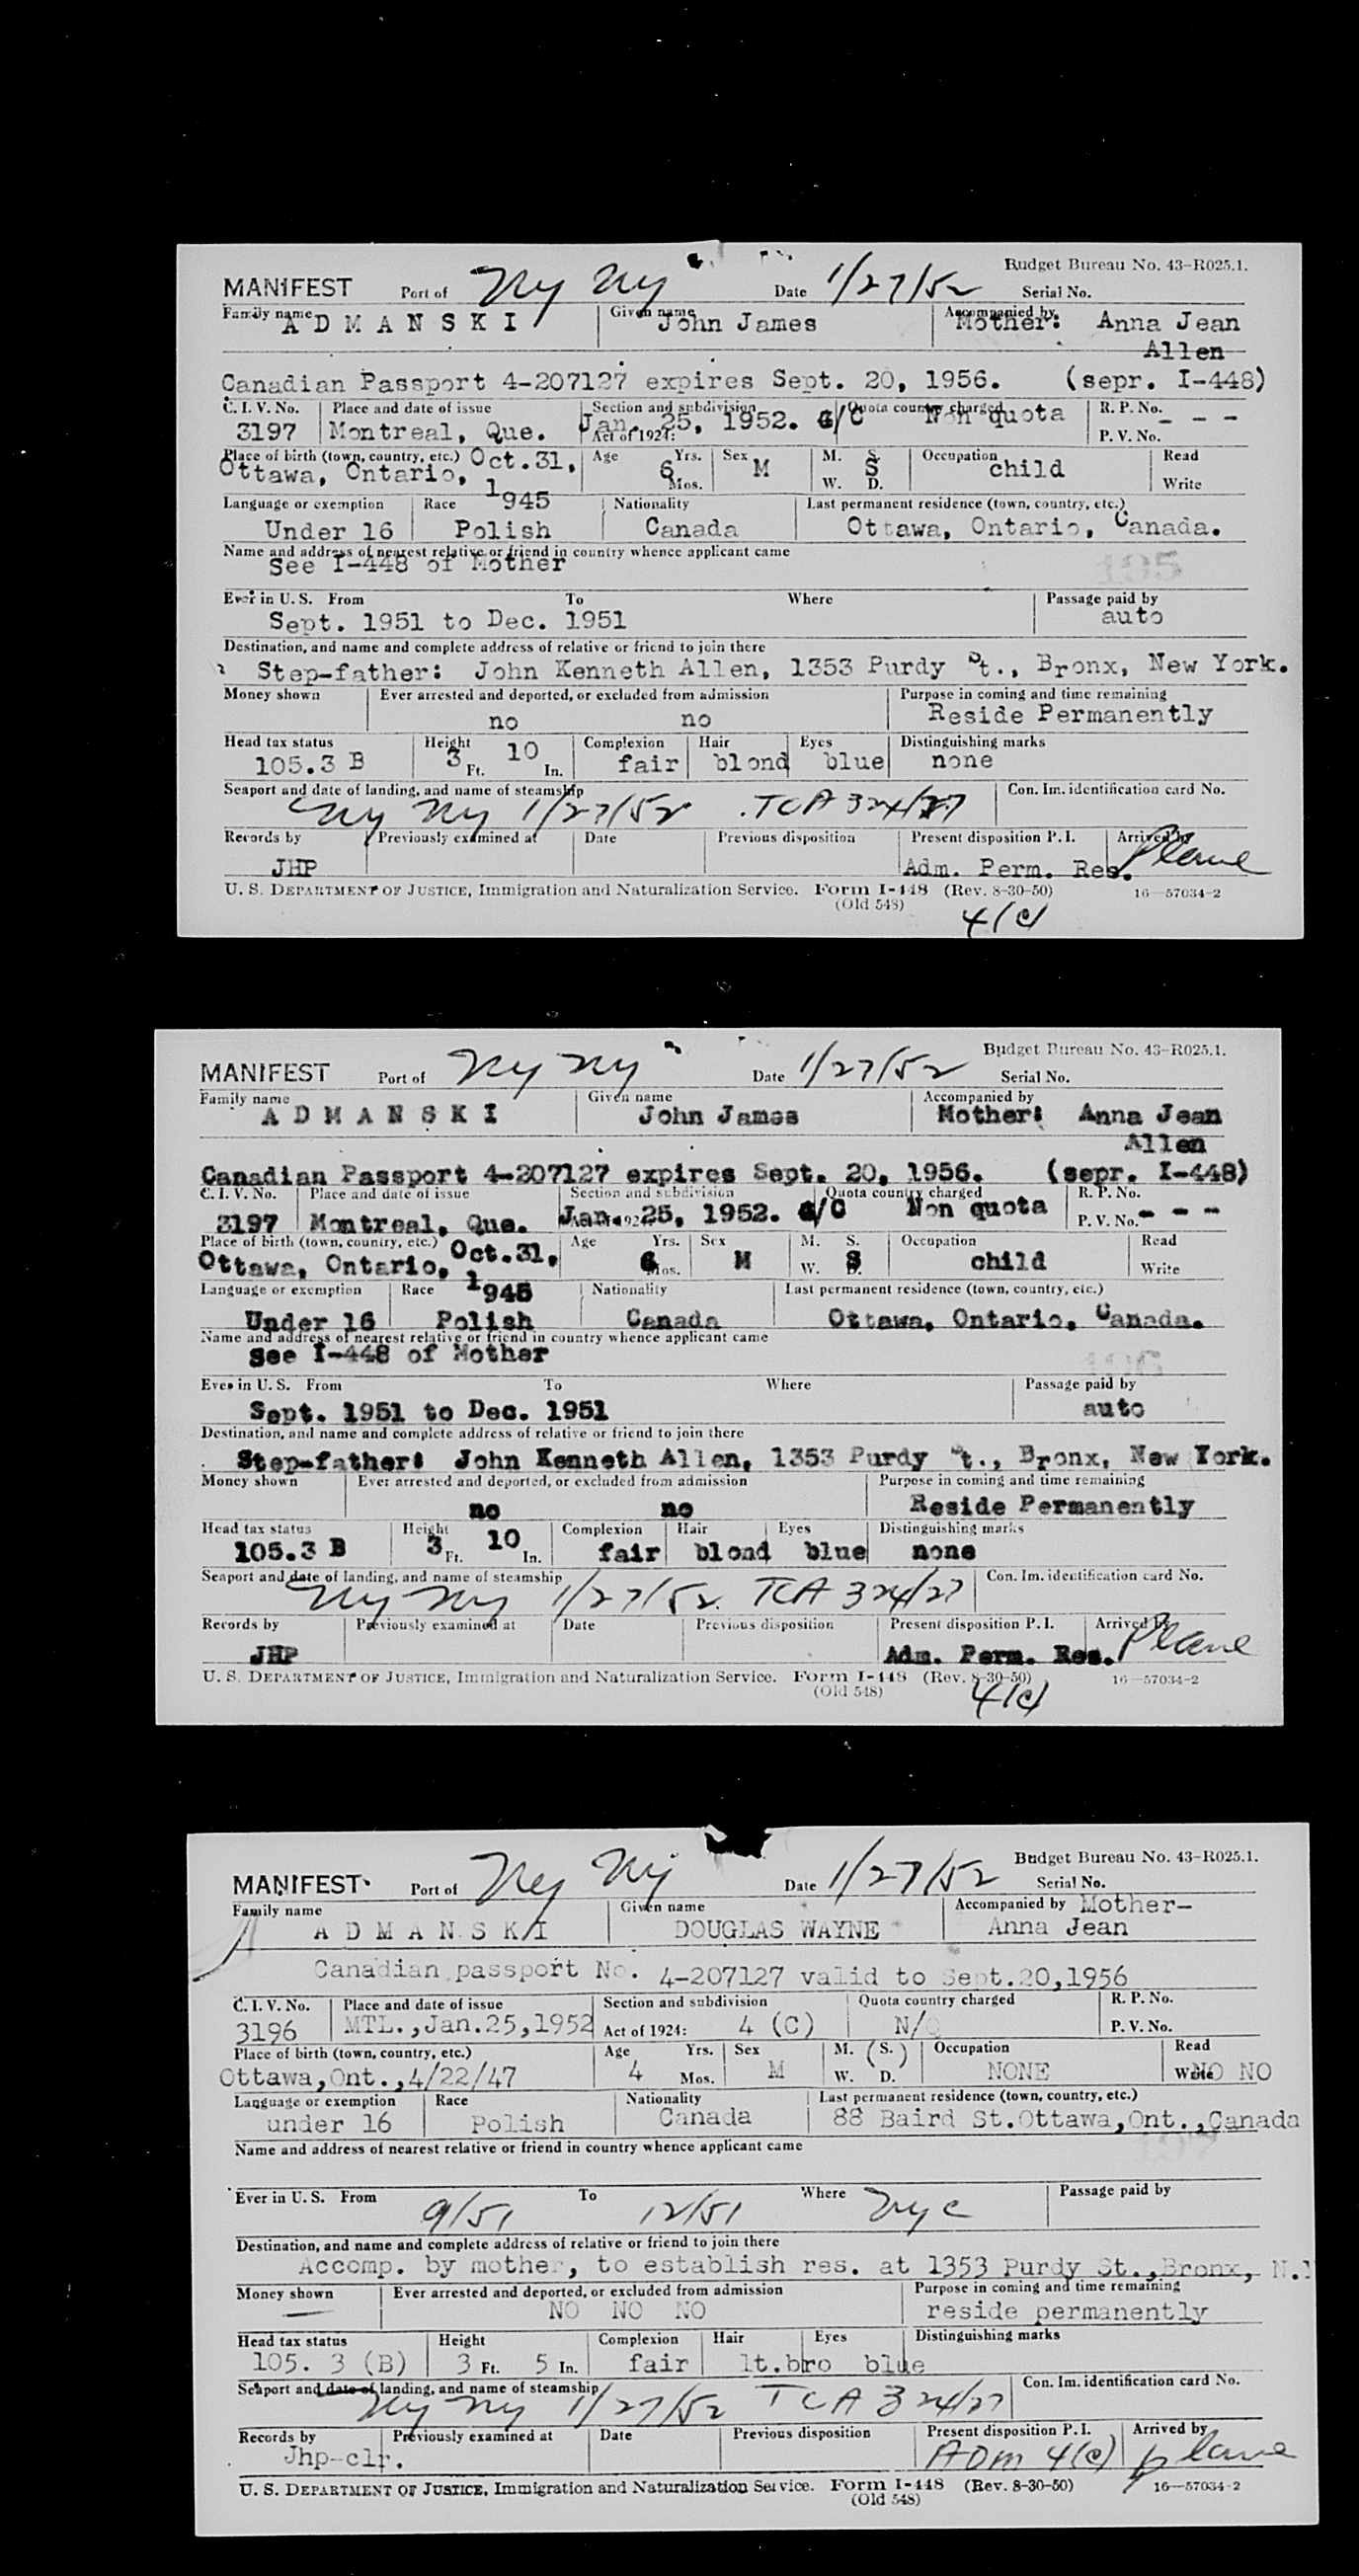 Budget Bureau No. 43-R025.1.
MANIFEST Port of Ny Ny Date 1/27/52 Serial No.
Family name Given name Accompanied by
A D M A N S K I John James Mother: Anna Jean
Allen
Canadian Passport 4-207127 expires Sept. 20, 1956. (sepr. I-448)
C. I. V. No. Place and date of issue Section and subdivision Quota country charged R. P. No.
3197 Montreal, Que. Jan. 25, 1952. 4/C Non quota - - -
Act of 1924: P. V. No.
Place of birth (town, country, etc.) Oct.31, Age Yrs. Sex M. S. Occupation Read
Ottawa, Ontario, 6 M S child
Mos. W. D. Write
1945
Language or exemption Race Nationality Last permanent residence (town, country, etc.)
Under 16 Polish Canada Ottawa, Ontario, Canada.
Name and address of nearest relative or friend in country whence applicant came
See I-448 of Mother
195
Ever in U. S. From To Where Passage paid by
Sept. 1951 to Dec. 1951 auto
Destination, and name and complete address of relative or friend to join there
Step-father: John Kenneth Allen, 1353 Purdy St., Bronx, New York.
Money shown Ever arrested and deported, or excluded from admission Purpose in coming and time remaining
no no Reside Permanently
Head tax status Height Complexion Hair Eyes Distinguishing marks
105.3 B 3 Ft. 10 In. fair blond blue none
Seaport and date of landing, and name of steamship Con. Im. identification card No.
Ny Ny 1/27/52 TCA 324/27
Records by Previously examined at Date Previous disposition Present disposition P. I. Arrived by
JHP Adm. Perm. Res. Plane
U. S. DEPARTMENT OF JUSTICE, Immigration and Naturalization Service. Form I-448 (Rev. 8-30-50) 16—57034-2
(Old 548)
4(c)
Budget Bureau No. 43-R025.1.
MANIFEST Port of Ny Ny Date 1/27/52 Serial No.
Family name Given name Accompanied by
A D M A N S K I John James Mother: Anna Jean
Allen
Canadian Passport 4-207127 expires Sept. 20, 1956. (sepr. I-448)
C. I. V. No. Place and date of issue Section and subdivision Quota country charged R. P. No.
3197 Montreal, Que. Jan. 25, 1952. 4/C Non quota P. V. No. - - -
Place of birth (town, country, etc.) Oct.31, Age Yrs. Sex M. S. Occupation Read
Ottawa, Ontario, 6 Mos. M W. S D. child Write
1945
Language or exemption Race Nationality Last permanent residence (town, country, etc.)
Under 16 Polish Canada Ottawa, Ontario, Canada.
Name and address of nearest relative or friend in country whence applicant came
See I-448 of Mother
196
Ever in U. S. From To Where Passage paid by
Sept. 1951 to Dec. 1951 auto
Destination, and name and complete address of relative or friend to join there
Step-father: John Kenneth Allen, 1353 Purdy St., Bronx, New York.
Money shown Ever arrested and deported, or excluded from admission Purpose in coming and time remaining
no no Reside Permanently
Head tax status Height Complexion Hair Eyes Distinguishing marks
105.3 B 3 Ft. 10 In. fair blond blue none
Seaport and date of landing, and name of steamship Con. Im. identification card No.
Ny Ny 1/27/52 TCA 324/27
Records by Previously examined at Date Previous disposition Present disposition P. I. Arrived by
JHP Adm. Perm. Res. Plane
U. S. DEPARTMENT OF JUSTICE, Immigration and Naturalization Service. Form I-448 (Rev. 8-30-50) 16—57034-2
(Old 548)
4(c)
Budget Bureau No. 43-R025.1.
MANIFEST Port of Ny Ny Date 1/27/52 Serial No.
Family name Given name Accompanied by Mother-
A D M A N S K I DOUGLAS WAYNE Anna Jean
Canadian passport No. 4-207127 valid to Sept.20,1956
C. I. V. No. Place and date of issue Section and subdivision Quota country charged R. P. No.
3196 MTL.,Jan.25,1952 Act of 1924: 4 (C) N/Q P. V. No.
Place of birth (town, country, etc.) Age Yrs. Sex M. (S.) Occupation Read
Ottawa,Ont.,4/22/47 4 Mos. M W. D. NONE Write NO NO
Language or exemption Race Nationality Last permanent residence (town, country, etc.)
under 16 Polish Canada 88 Baird St.Ottawa,Ont.,Canada
Name and address of nearest relative or friend in country whence applicant came
Ever in U. S. From To Where Passage paid by
9/51 12/51 Nyc
Destination, and name and complete address of relative or friend to join there
Accomp. by mother, to establish res. at 1353 Purdy St.,Bronx, N.Y
Money shown Ever arrested and deported, or excluded from admission Purpose in coming and time remaining
— NO NO NO reside permanently
Head tax status Height Complexion Hair Eyes Distinguishing marks
105. 3 (B) 3 Ft. 5 In. fair lt.bro blue
Seaport and date of landing, and name of steamship Con. Im. identification card No.
Ny Ny 1/27/52 TCA 324/27
Records by Previously examined at Date Previous disposition Present disposition P. I. Arrived by
Jhp-clr. ADM 4(c) plane
U. S. DEPARTMENT OF JUSTICE, Immigration and Naturalization Service. Form I-448 (Rev. 8-30-50) 16—57034-2
(Old 548)